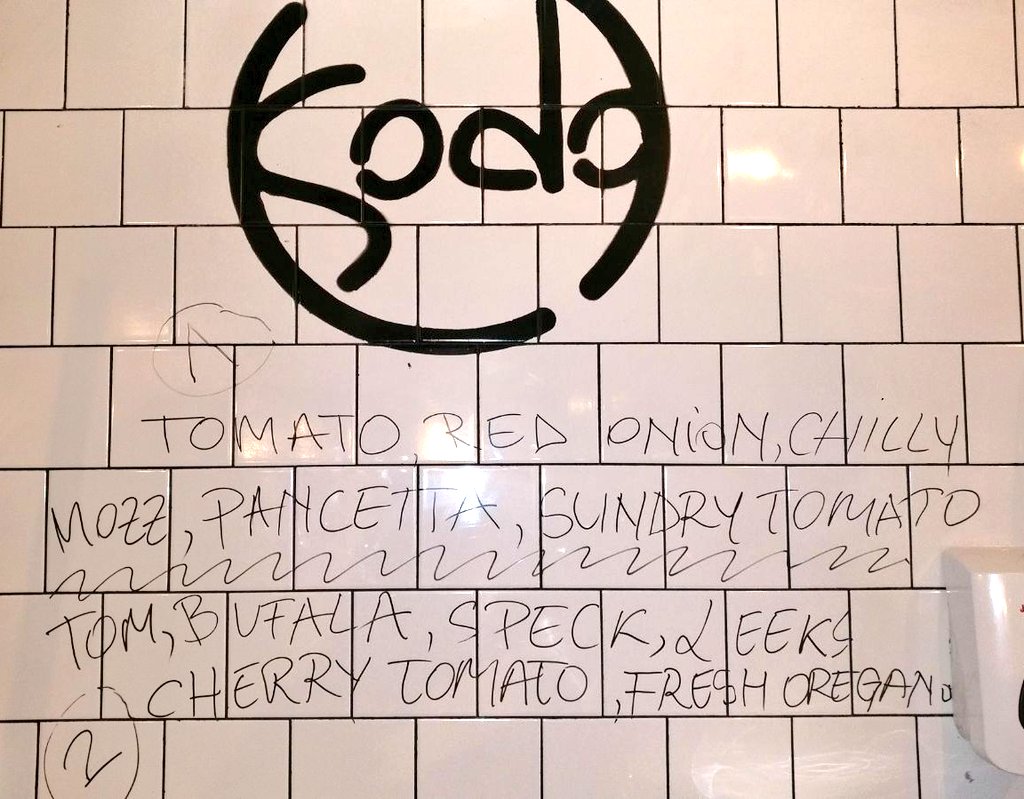 Soda
1
TOMATO, RED ONION, CHILLY
MOZZ, PANCETTA, SUNDRY TOMATO
TOM, BUFALA, SPECK, LEEKS
CHERRY TOMATO, FRESH OREGANO
2